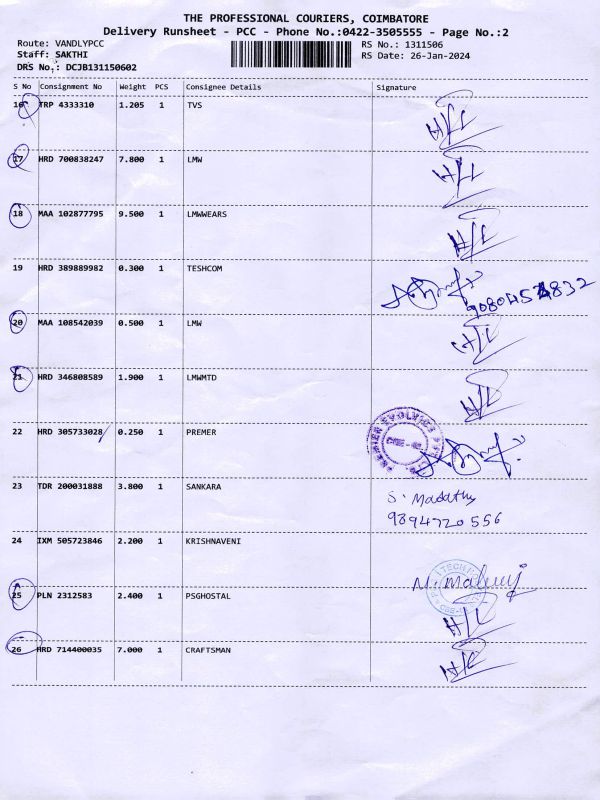 THE PROFESSIONAL COURIERS, COIMBATORE
Delivery Runsheet - PCC - Phone No.:0422-3505555 - Page No.:2
Route: VANDLYPCC RS No.: 1311506
Staff: SAKTHI RS Date: 26-Jan-2024
DRS No.: DCJB131150602
S No Consignment No Weight PCS Consignee Details Signature
16 TRP 4333310 1.205 1 TVS
17 HRD 700838247 7.800 1 LMW
18 MAA 102877795 9.500 1 LMWWEARS
19 HRD 389889982 0.300 1 TESHCOM
20 MAA 108542039 0.500 1 LMW
21 HRD 346808589 1.900 1 LMWMTD
22 HRD 305733028 0.250 1 PREMER
23 TDR 200031888 3.800 1 SANKARA
S. Madathy
9894720556
24 IXM 505723846 2.200 1 KRISHNAVENI
25 PLN 2312583 2.400 1 PSGHOSTAL
26 HRD 714400035 7.000 1 CRAFTSMAN